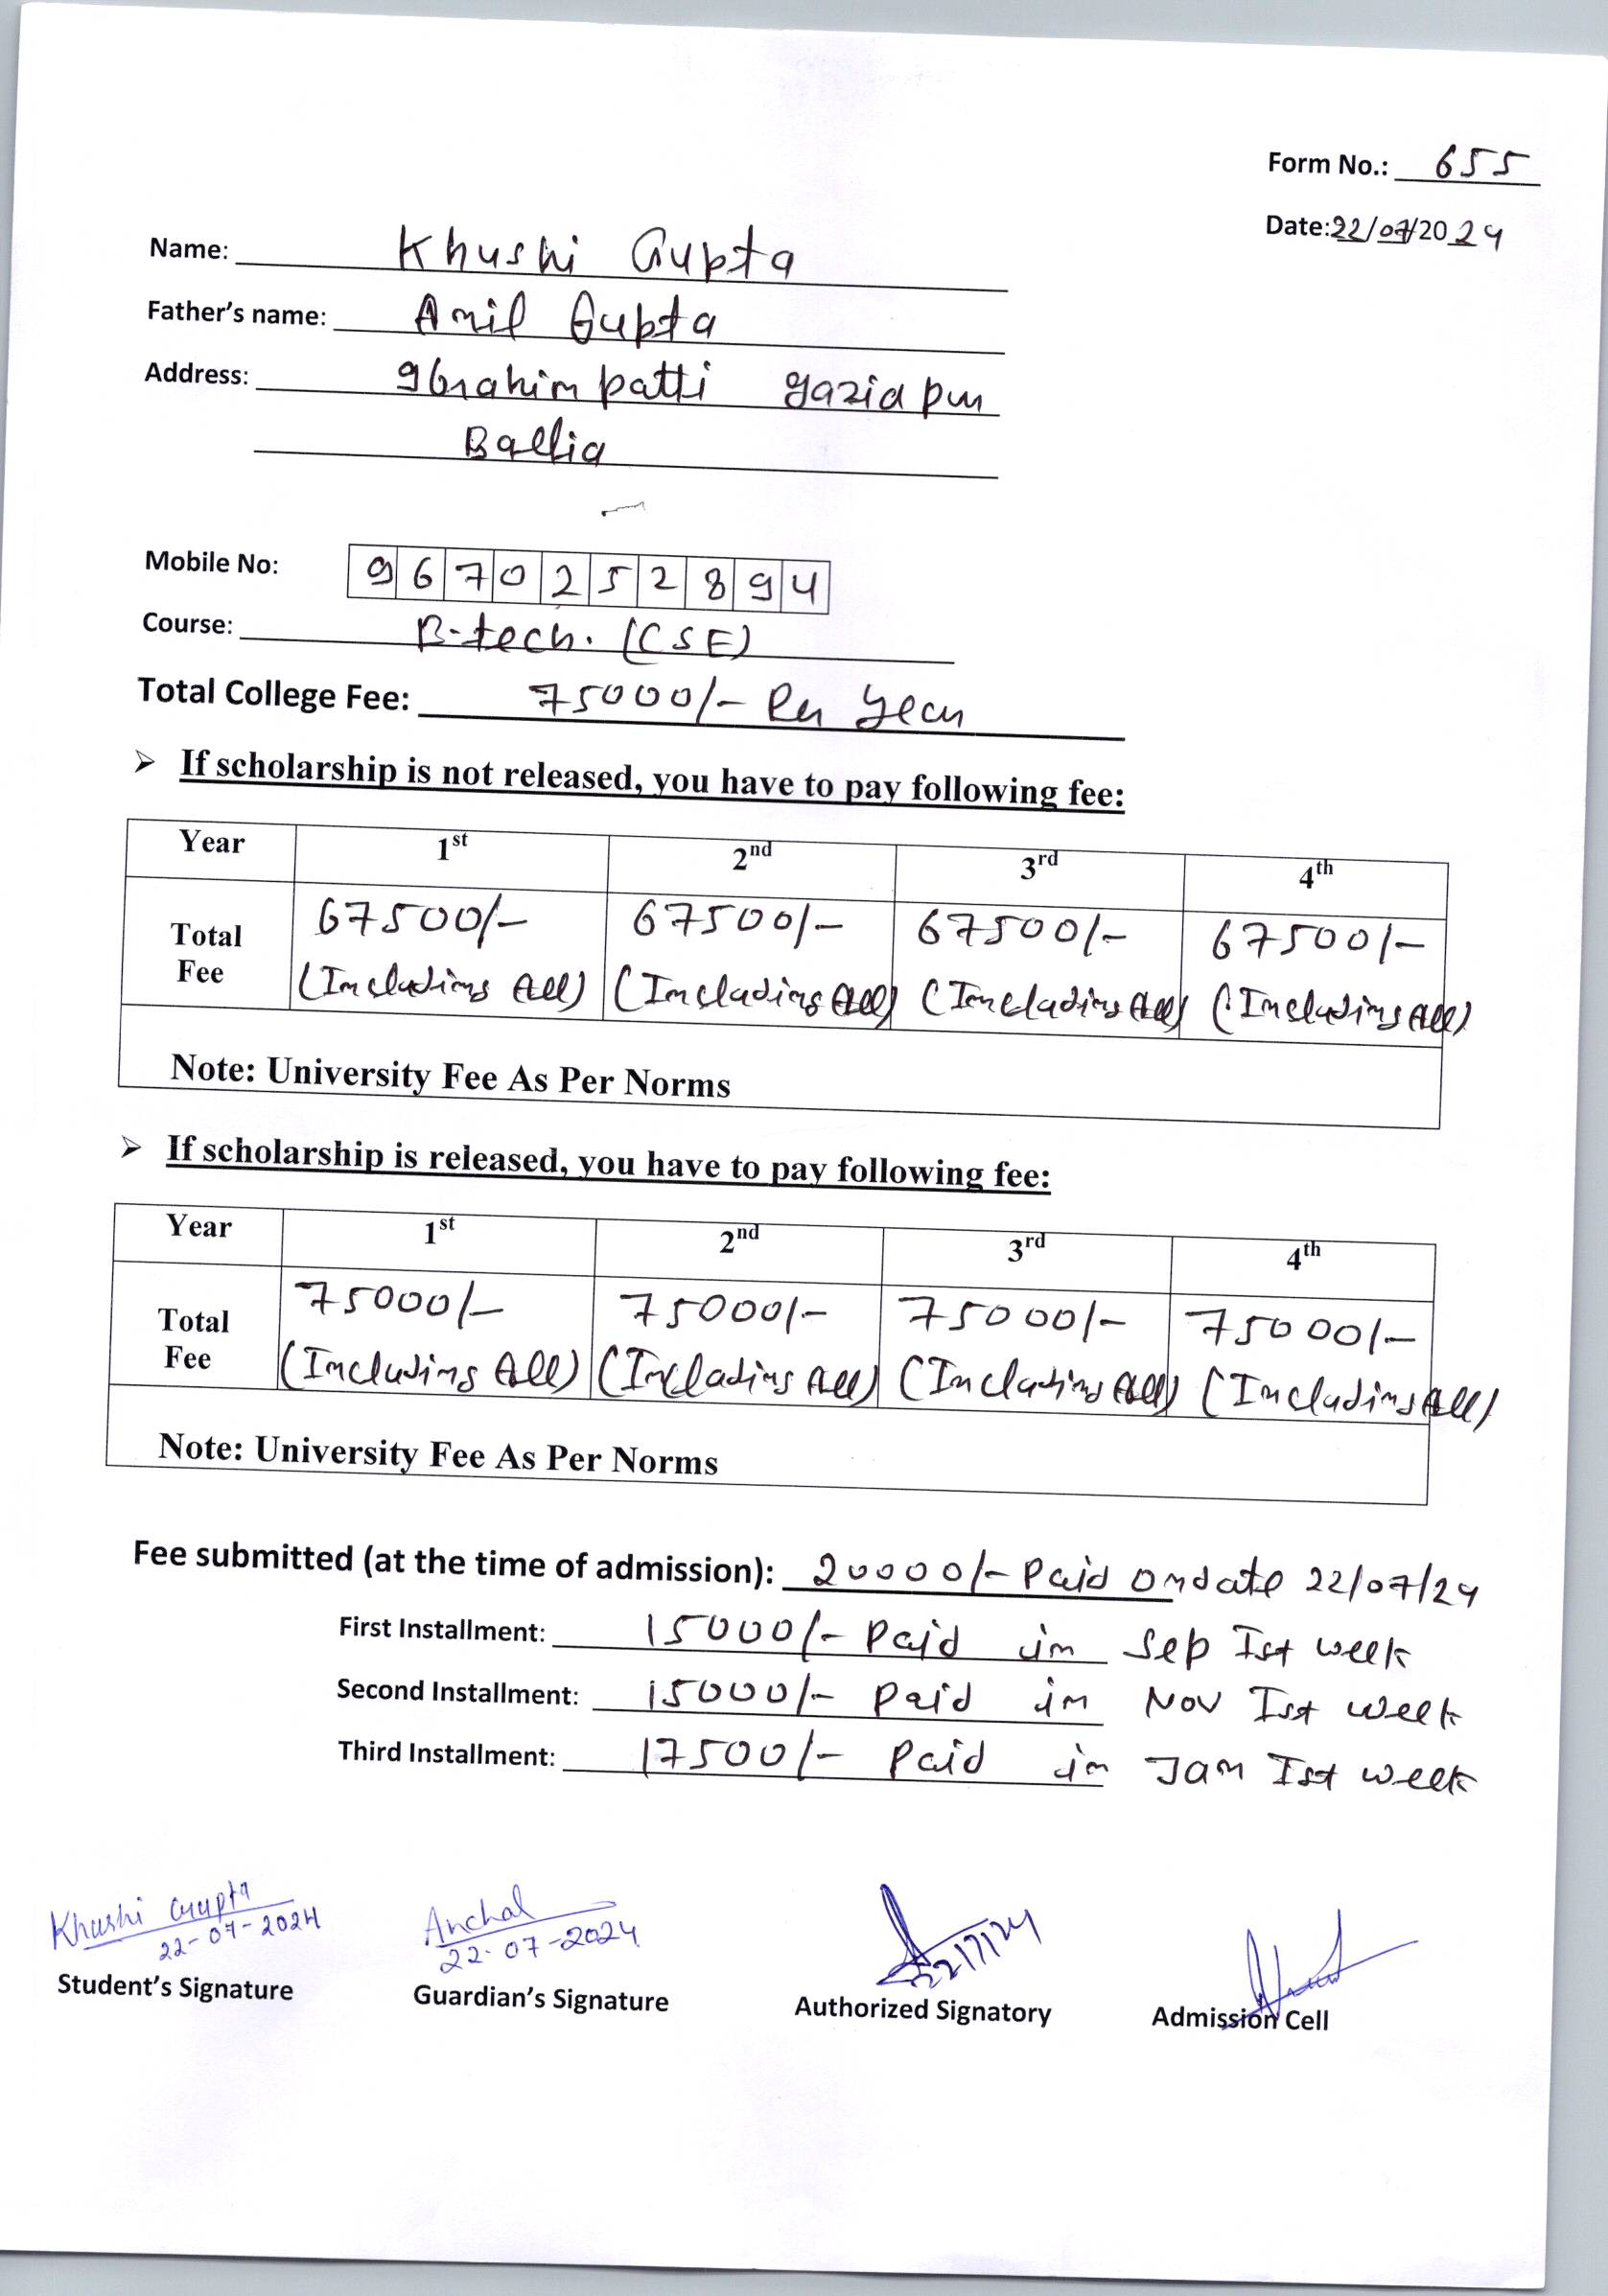 Form No.: 655
Date:22/07/2024
Name: Khushi Gupta
Father's name: Anil Gupta
Address: Ibrahim patti gaziapur
Ballia
Mobile No: 9670252894
Course: B-tech. (CSE)
Total College Fee: 75000/- Per Year
➢ If scholarship is not released, you have to pay following fee:
Year 1st 2nd 3rd 4th
Total Fee 67500/- 67500/- 67500/- 67500/-
(Including All) (Including All) (Including All) (Including All)
Note: University Fee As Per Norms
➢ If scholarship is released, you have to pay following fee:
Year 1st 2nd 3rd 4th
Total Fee 75000/- 75000/- 75000/- 75000/-
(Including All) (Including All) (Including All) (Including All)
Note: University Fee As Per Norms
Fee submitted (at the time of admission): 20000/- Paid ondate 22/07/24
First Installment: 15000/- Paid in Sep Ist week
Second Installment: 15000/- Paid in Nov Ist week
Third Installment: 17500/- Paid in Jan Ist week
Khushi Gupta Anchal
22-07-2024 22-07-2024 22/7/24
Student's Signature Guardian's Signature Authorized Signatory Admission Cell